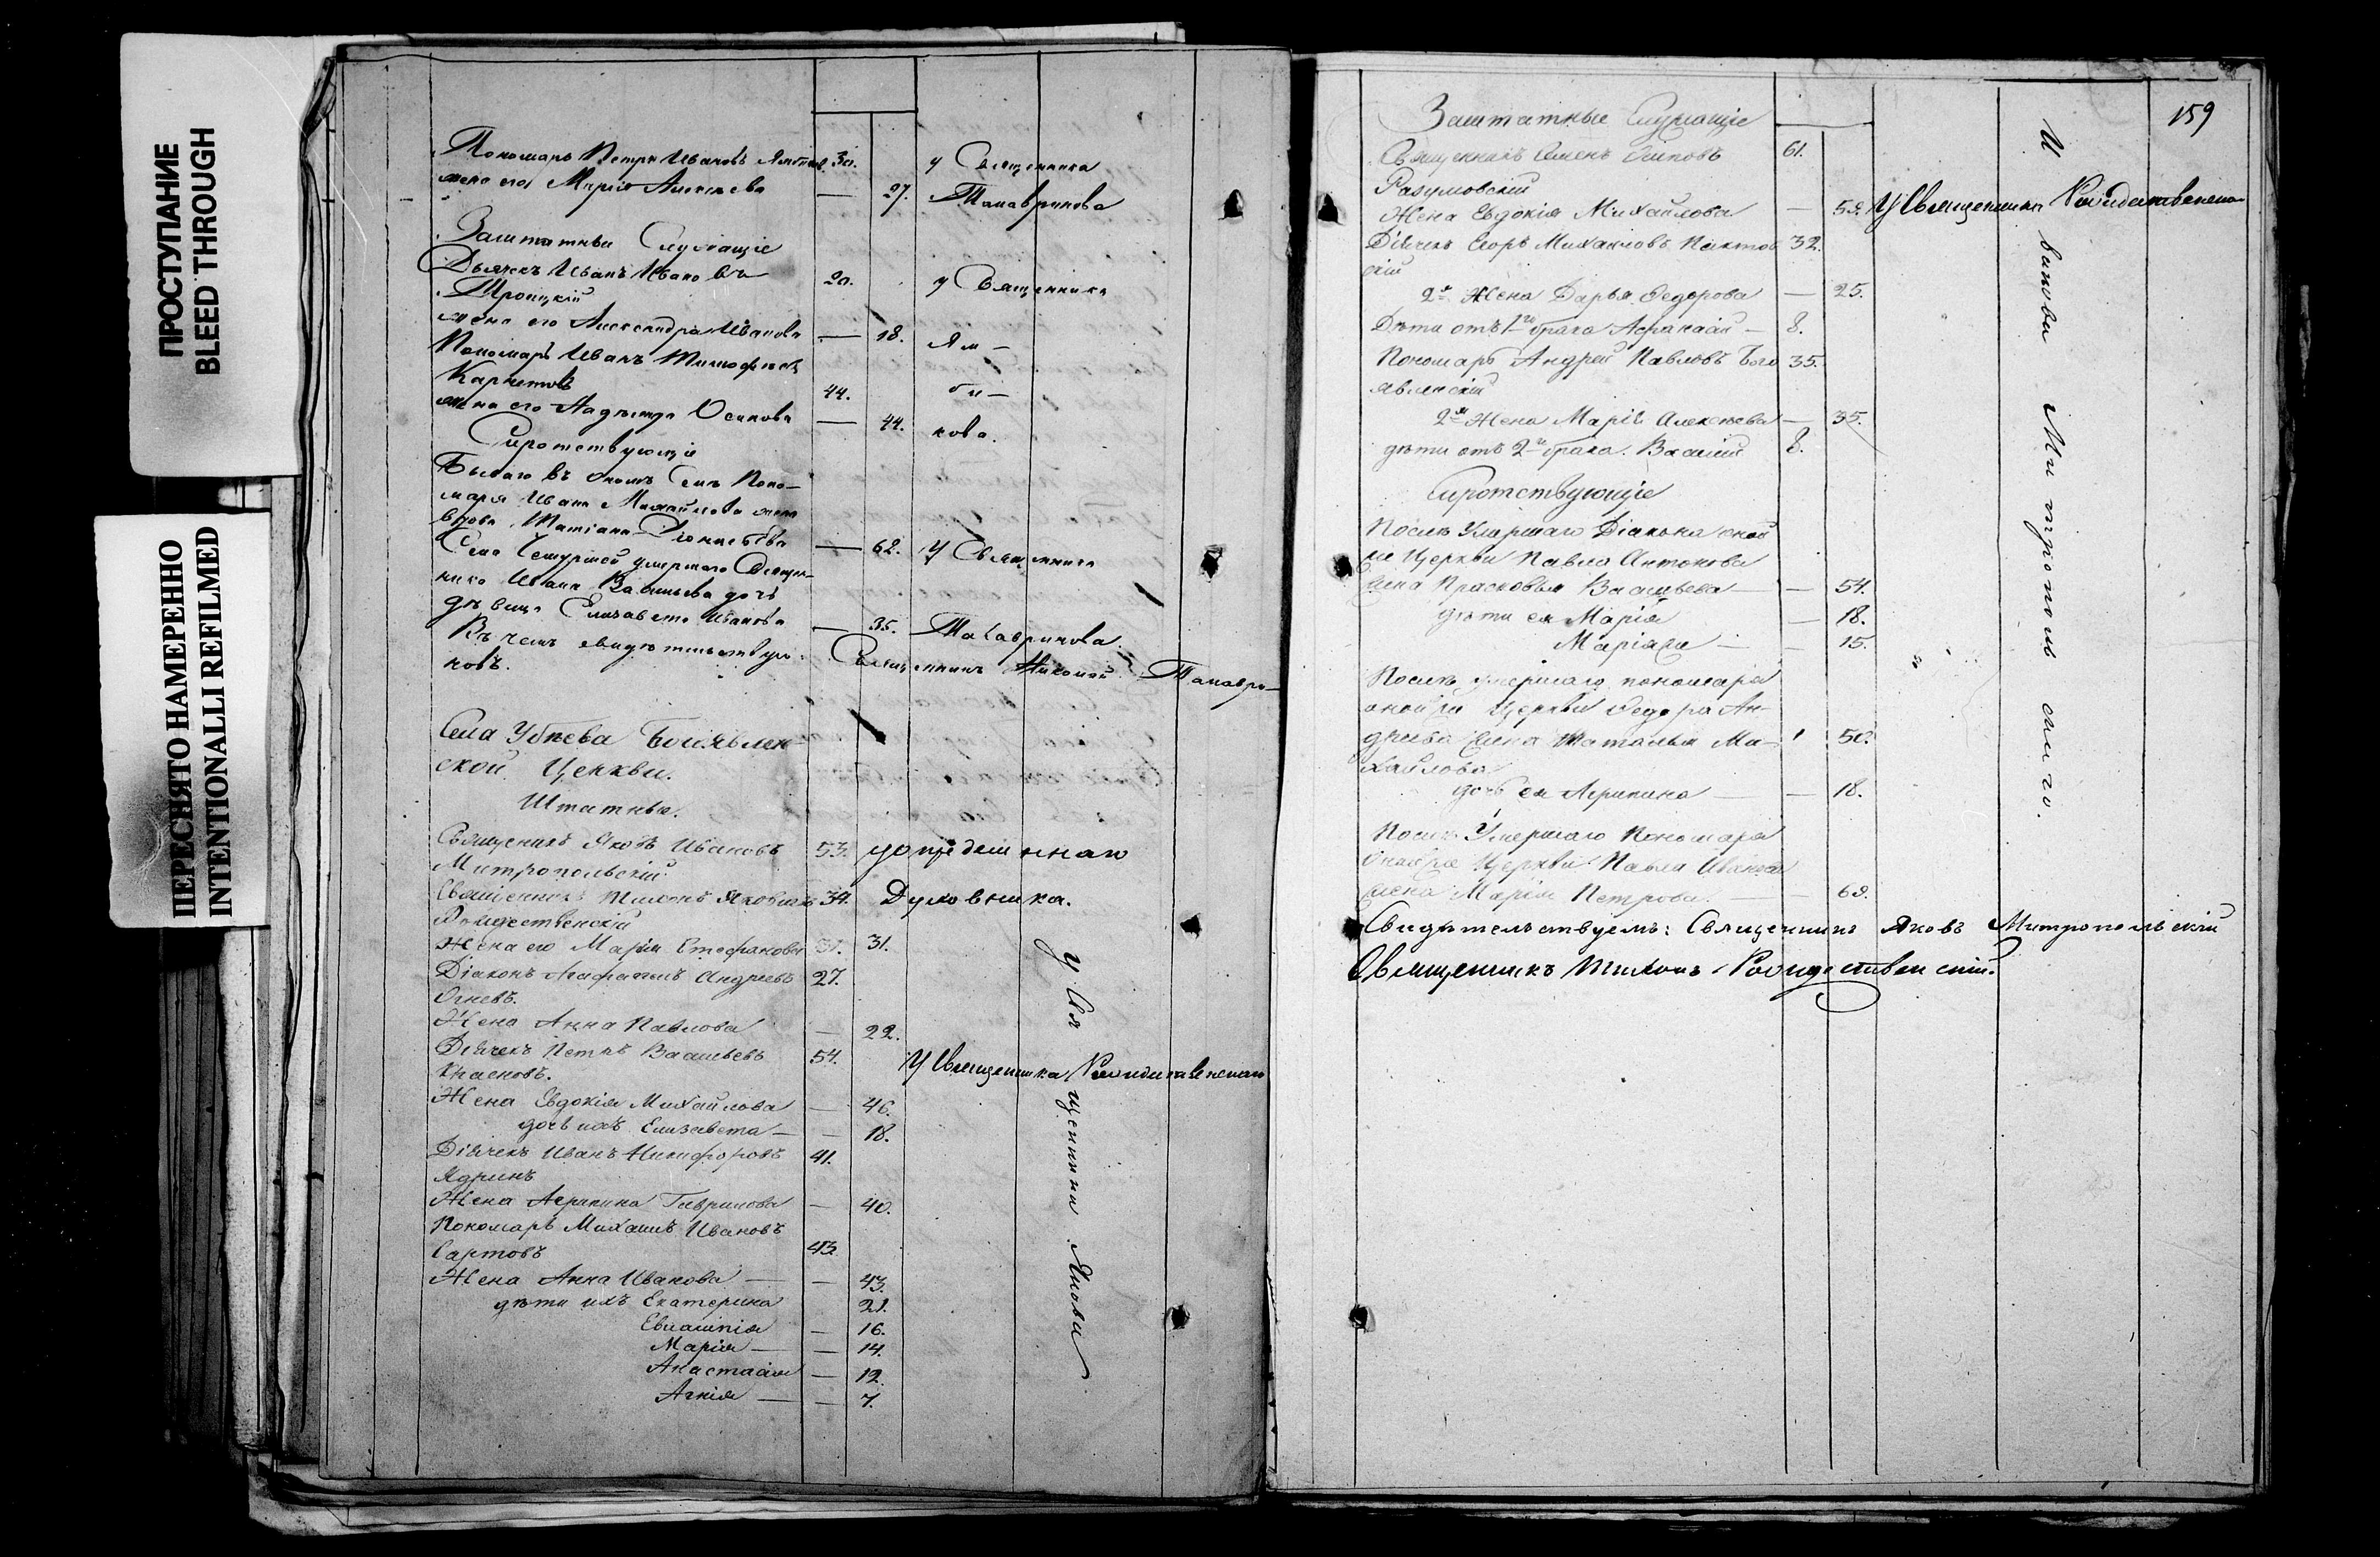 ПРОСТУПАНИЕ
BLEED THROUGH
ПЕРЕСНЯТО НАМЕРЕННО
INTENTIONALLI REFILMED
Пономарь Петръ Ивановъ 30. у Священника
жена его Марія Алексѣева — 27.
Заштатныи Служащіе
Дьячекъ Иванъ Ивановъ 20. у Священника
Троицкій
жена его Александра Иванова — 18.
Пономарь Иванъ Тимофѣевъ
44.
жена его Осипова — 44. кова.
Сиротствующіе
Бывшаго въ ономъ Селѣ Поно-
маря Ивана Михайлова жена
вдова Татіана — 62. У Священника
Села умершаго Священ-
ника Ивана Васильева дочь
дѣвица Елизавета Иванова — 35.
Въ чемъ свидѣтельствую Священникъ Николай
ковъ.
Села Убѣева Богоявлен-
ской Церкви.
Штатные.
Священникъ Яковъ Ивановъ 53. у опредѣленнаго
Митропольскій
Священникъ Тихонъ Яковлевъ 34. Духовника.
Рождественскій
Жена его Марія Стефанова 31. 31.
Діаконъ Андреевъ 27.
Огневъ.
Жена Анна Павлова — 22.
Дьячекъ Петръ Васильевъ 54. У Священника Рождественскаго
Красновъ.
Жена Евдокія Михайлова — 46.
дочь ихъ Елизавета — — 18.
Дьячекъ Иванъ Никифоровъ 41.
Ядринъ
Жена Агрипина Гаврилова — 40.
Пономарь Михаилъ Ивановъ
Сартовъ 43
Жена Анна Иванова — — 43.
дѣти ихъ Екатерина 21.
Евлампія — 16.
Марія — — 14.
Анастасія — 12.
Агнія — — 7.
У Священника Якова
159
Заштатные Служащіе
Священникъ Семенъ Осиповъ 61.
Разумовскій
Жена Евдокія Михайлова — 58. У Священника Рождественскаго
Дьячекъ Егоръ Михаиловъ 32.
скій
2я Жена Дарья Федорова — 25.
Дѣти отъ 1го брака Афанасій — 8.
Пономарь Андрей Павловъ Бого 35.
явленскій
2я Жена Марія Алексѣева — 35.
дѣти отъ 2го брака Василій 8.
Сиротствующіе
Послѣ Умершаго Діакона оной
же Церкви Павла Антонова
жена Прасковья Васильева — — 54.
дѣти ея Марія — 18.
— — 15.
Послѣ умершаго пономаря
оной же Церкви Федора Ан-
дреева жена Наталья Ми- 50.
хайлова
дочь ея Агрипина — — 18.
Послѣ Умершаго Пономаря
оной же Церкви Павла Иванова
жена Марія Петрова. — — 68.
Свидѣтельствуемъ: Священникъ Яковъ Митропольскій
Священникъ Тихонъ Рождественскій.
Иванова Митропольскаго.